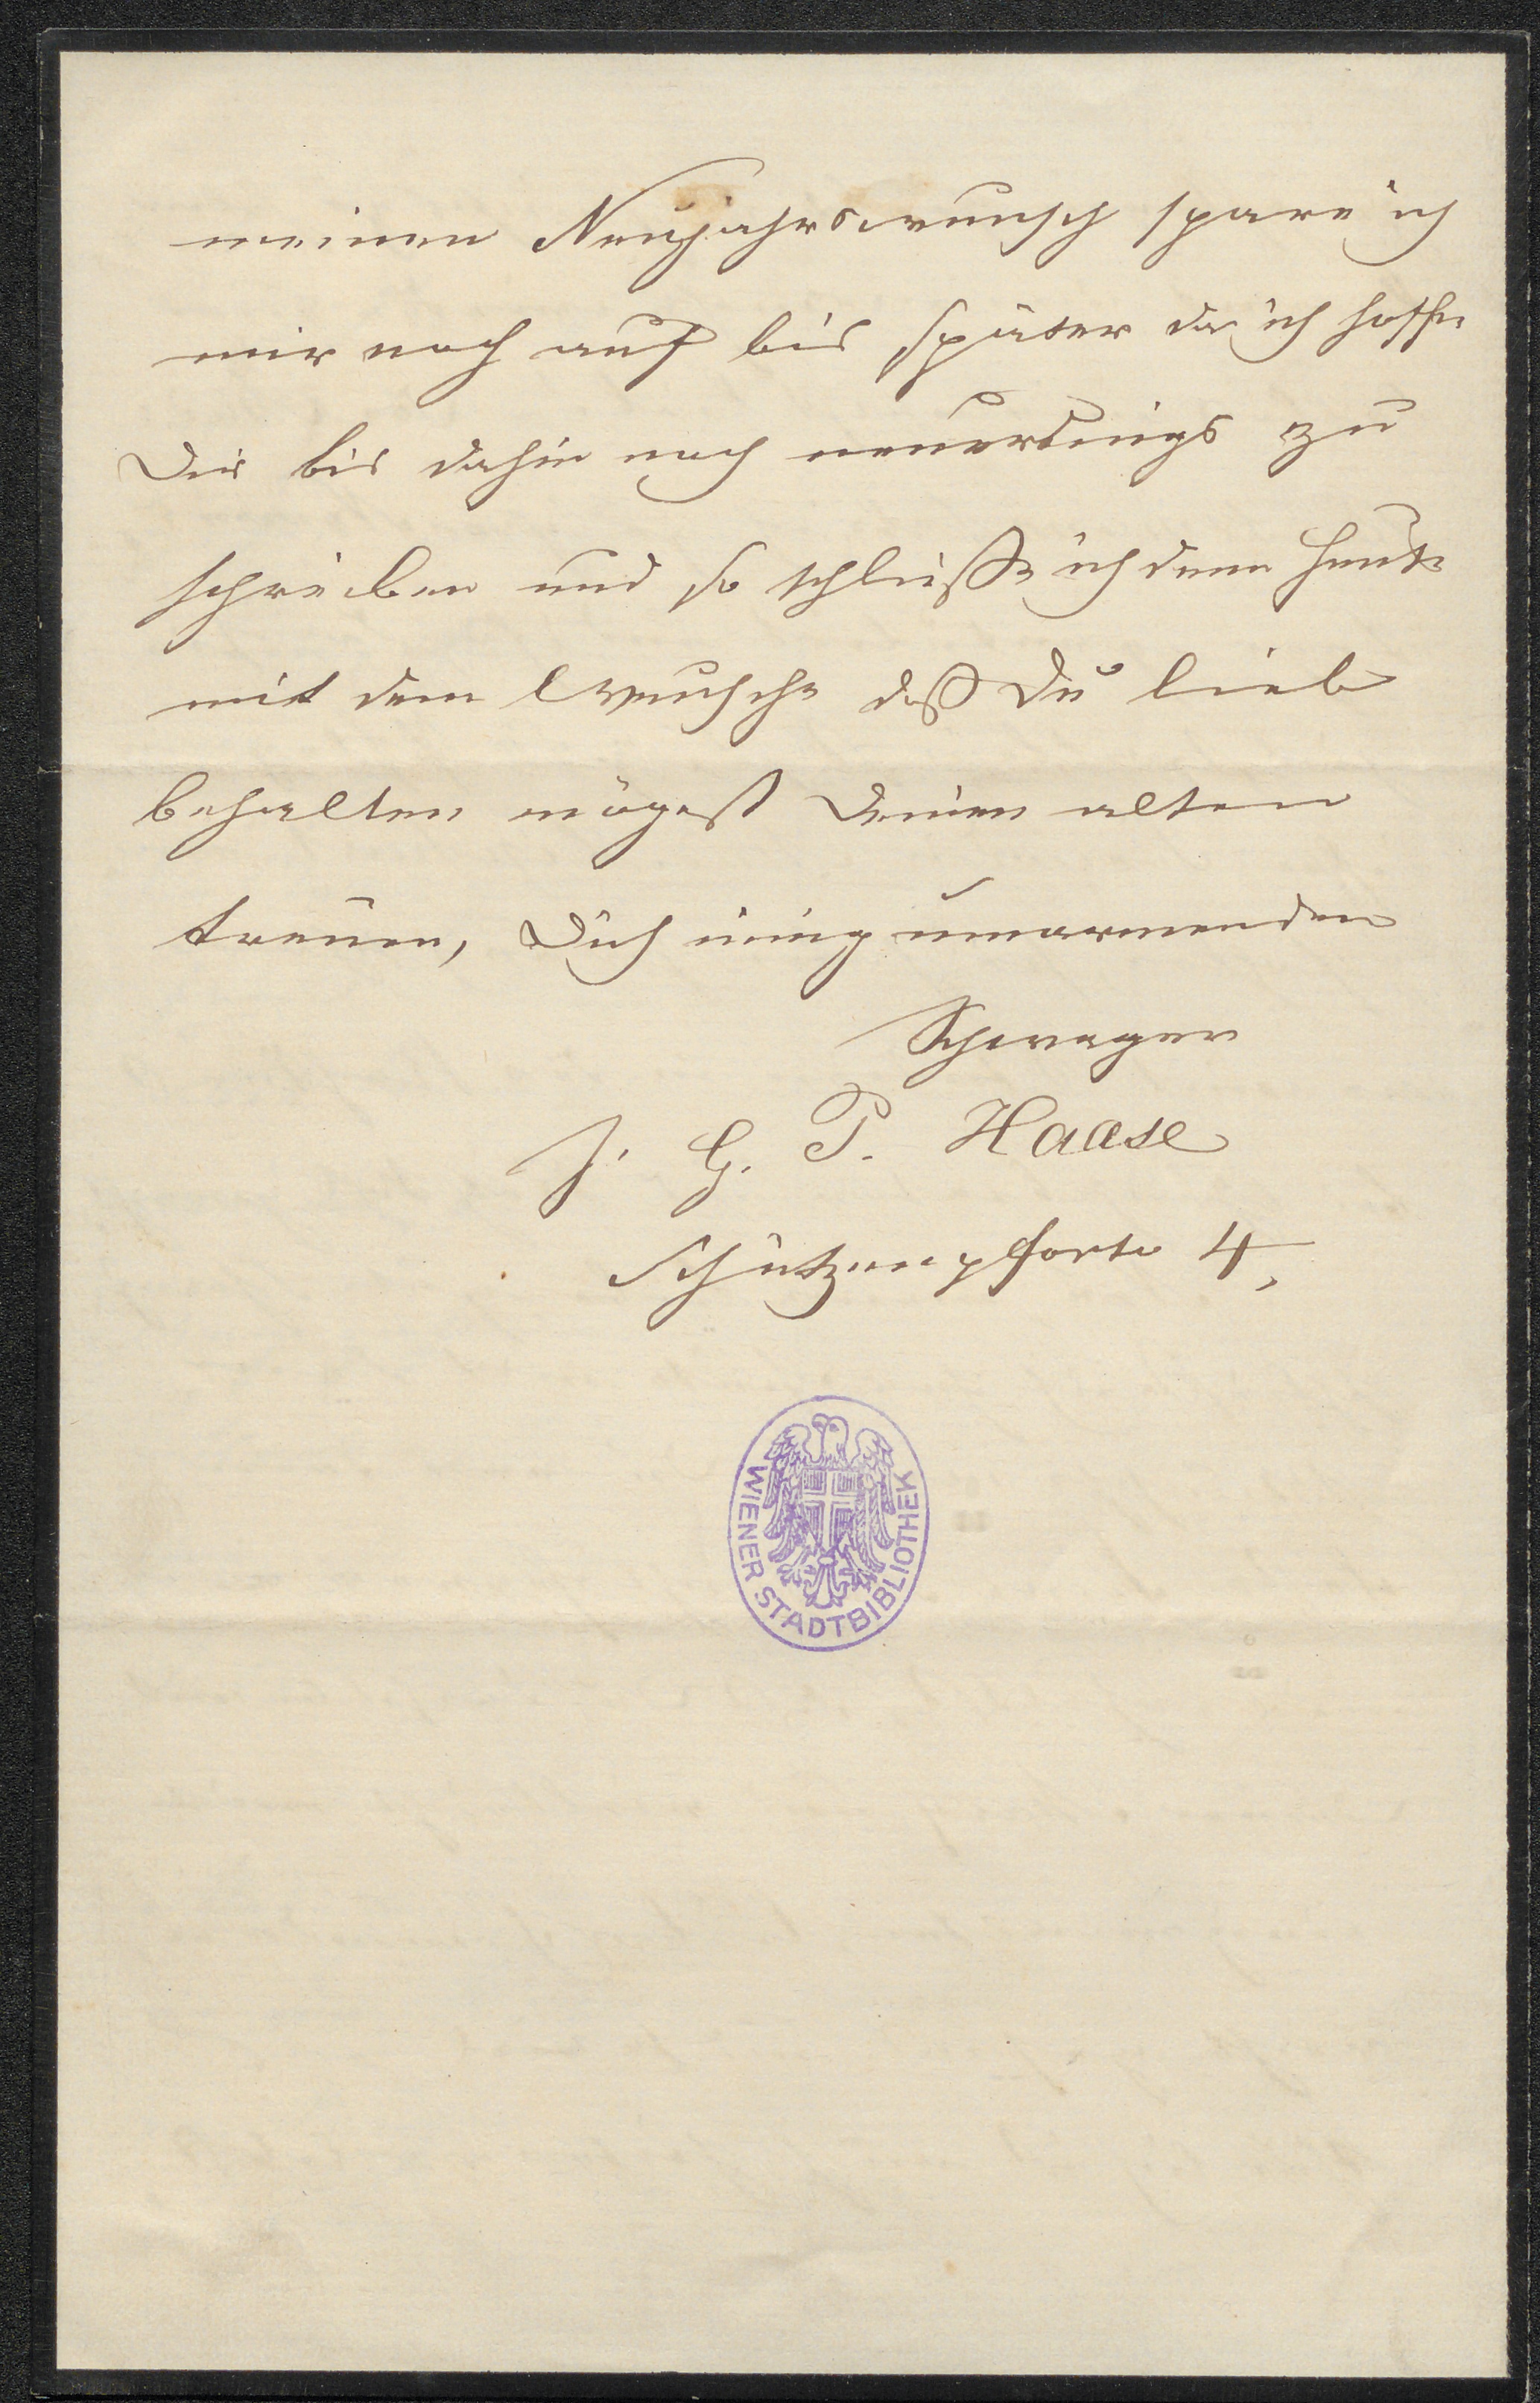 meinen Neujahrswunsch spare ich
mir noch auf bis später da ich hoffe
Dir bis dahin noch neuerdings zu
schreiben und so schließe ich denn heute
mit dem Wunsche daß Du lieb
behalten mögest Deinen alten
treuen, Dich innig umarmenden
Schwager
J. G. P. Haase
Schützenpforte 4,
WIENER STADTBIBLIOTHEK